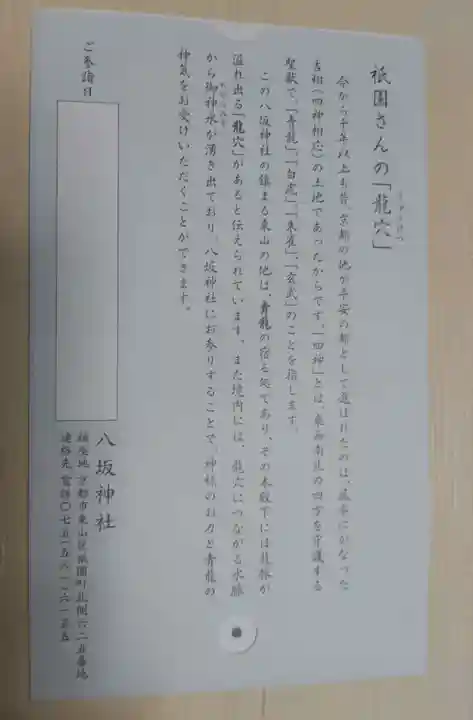 祇園さんの「龍穴」
りゅうけつ
今から千年以上も昔、京都の地が平安の都として選ばれたのは、風水にかなった
吉相(四神相応)の土地であったからです。「四神」とは、東西南北の四方を守護する
聖獣で、「青龍」、「白虎」、「朱雀」、「玄武」のことを指します。
この八坂神社の鎮まる東山の地は、青龍の宿る処であり、その本殿下には龍脈が
溢れ出る「龍穴」があると伝えられています。また境内には、龍穴につながる水脈
から御神水が湧き出ており、八坂神社にお参りすることで、神様のお力と青龍の
神気をお受けいただくことができます。
ご参詣日
八坂神社
鎮座地 京都市東山区祇園町北側六二五番地
連絡先 電話〇七五‐五六一‐六一五五